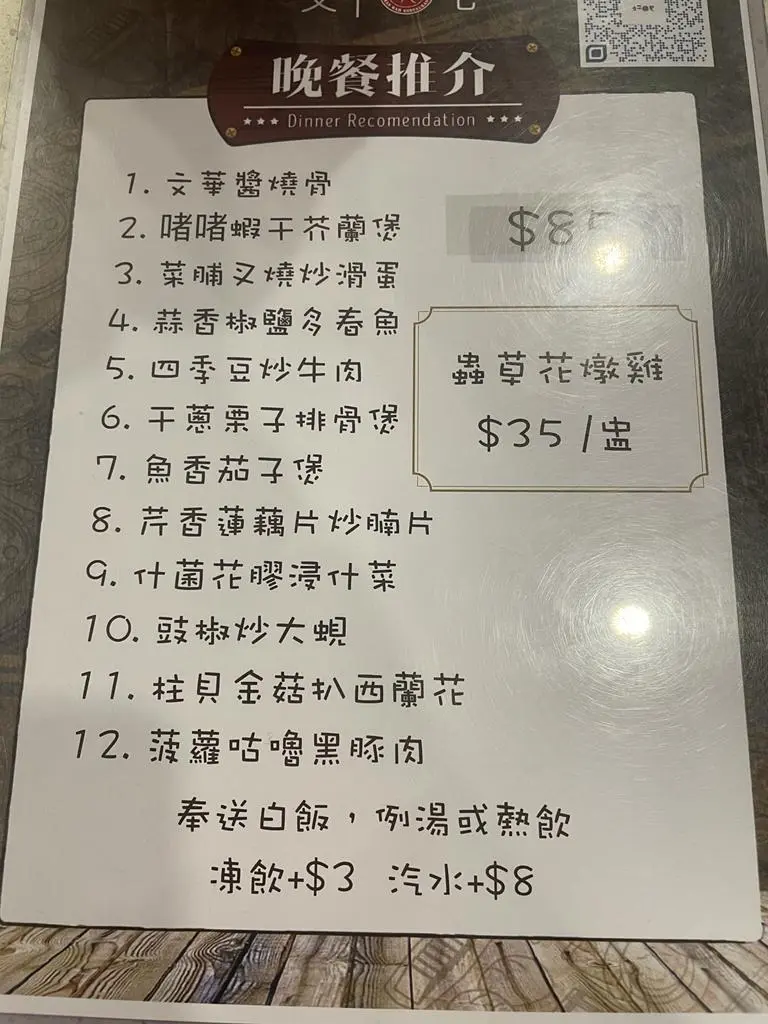 晚餐推介
Dinner Recomendation
1. 文華醬燒骨
2. 啫啫蝦干芥蘭煲
3. 菜脯叉燒炒滑蛋
4. 蒜香椒鹽多春魚
5. 四季豆炒牛肉
6. 干蔥栗子排骨煲
7. 魚香茄子煲
8. 芹香蓮藕片炒腩片
9. 什菌花膠浸什菜
10. 豉椒炒大蜆
11. 柱貝金菇扒西蘭花
12. 菠蘿咕嚕黑豚肉
蟲草花燉雞
$35 /盅
奉送白飯，例湯或熱飲
凍飲+$3 汽水+$8